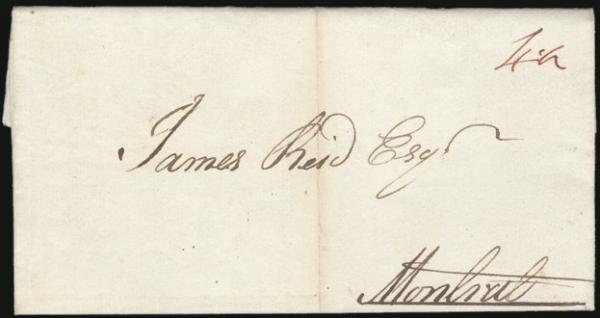 James Reid Esqr
Montreal